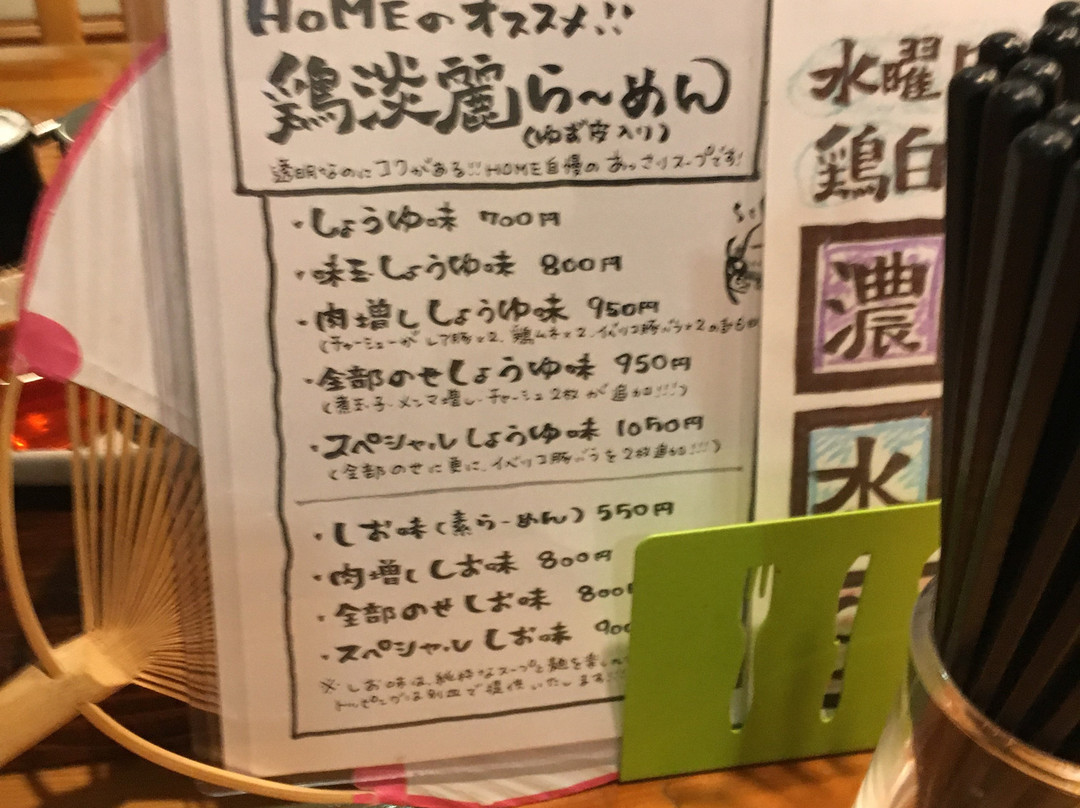 HOMEのオススメ!!
鶏淡麗ら～めん
(ゆず皮入り)
透明なのにコクがある!!HOME自慢のあっさりスープです!
・しょうゆ味 700円
・味玉しょうゆ味 800円
・肉増ししょうゆ味 950円
(チャーシューがレア豚×2、鶏ムネ×2、イベリコ豚バラ×2の計6
・全部のせしょうゆ味 950円
(煮玉子・メンマ増し・チャーシュ2枚が追加!!!)
・スペシャルしょうゆ味 1050円
(全部のせに更に、イベリコ豚バラを2枚追加!!!)
・しお味(素らーめん) 550円
・肉増ししお味 800円
・全部のせしお味 800
・スペシャルしお味 900
※しお味は、純粋なスープと麺を楽し
トッピングは別皿で提供いたします!!
水曜
鶏白
濃
水